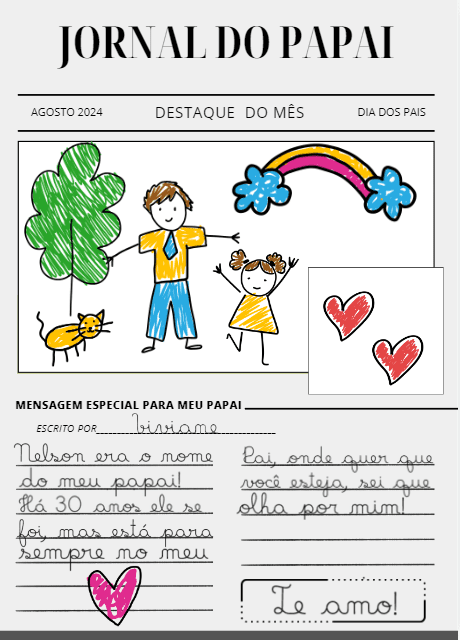 JORNAL DO PAPAI
AGOSTO 2024
DESTAQUE DO MÊS
DIA DOS PAIS
MENSAGEM ESPECIAL PARA MEU PAPAI
ESCRITO POR Viviane
Nelson era o nome
do meu papai!
Há 30 anos ele se
foi, mas está para
sempre no meu
Pai, onde quer que
você esteja, sei que
olha por mim!
Te amo!